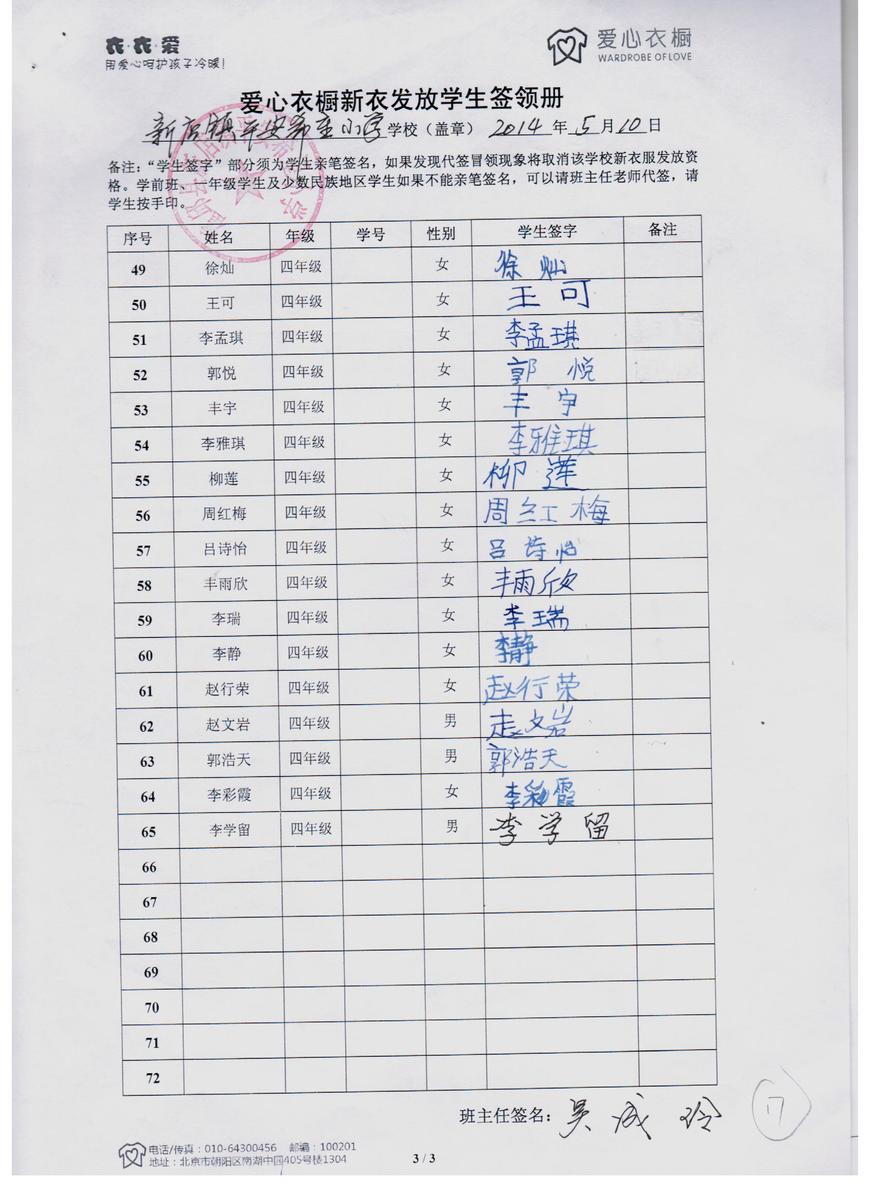 衣·衣·爱
用爱心呵护孩子冷暖!
爱心衣橱
WARDROBE OF LOVE
爱心衣橱新衣发放学生签领册
新店镇平安希望小学学校（盖章） 2014 年 5 月 10 日
备注：“学生签字”部分须为学生亲笔签名，如果发现代签冒领现象将取消该学校新衣服发放资
格。学前班、一年级学生及少数民族地区学生如果不能亲笔签名，可以请班主任老师代签，请
学生按手印。
序号 姓名 年级 学号 性别 学生签字 备注
49 徐灿 四年级 女 徐灿
50 王可 四年级 女 王可
51 李孟琪 四年级 女 李孟琪
52 郭悦 四年级 女 郭悦
53 丰宇 四年级 女 丰宇
54 李雅琪 四年级 女 李雅琪
55 柳莲 四年级 女 柳莲
56 周红梅 四年级 女 周红梅
57 吕诗怡 四年级 女 吕诗怡
58 丰雨欣 四年级 女 丰雨欣
59 李瑞 四年级 女 李瑞
60 李静 四年级 女 李静
61 赵行荣 四年级 女 赵行荣
62 赵文岩 四年级 男 赵文岩
63 郭浩天 四年级 男 郭浩天
64 李彩霞 四年级 女 李彩霞
65 李学留 四年级 男 李学留
66
67
68
69
70
71
72
班主任签名：吴成玲
17
电话/传真：010-64300456 邮编：100201
地址：北京市朝阳区南湖中园405号楼1304
3 / 3